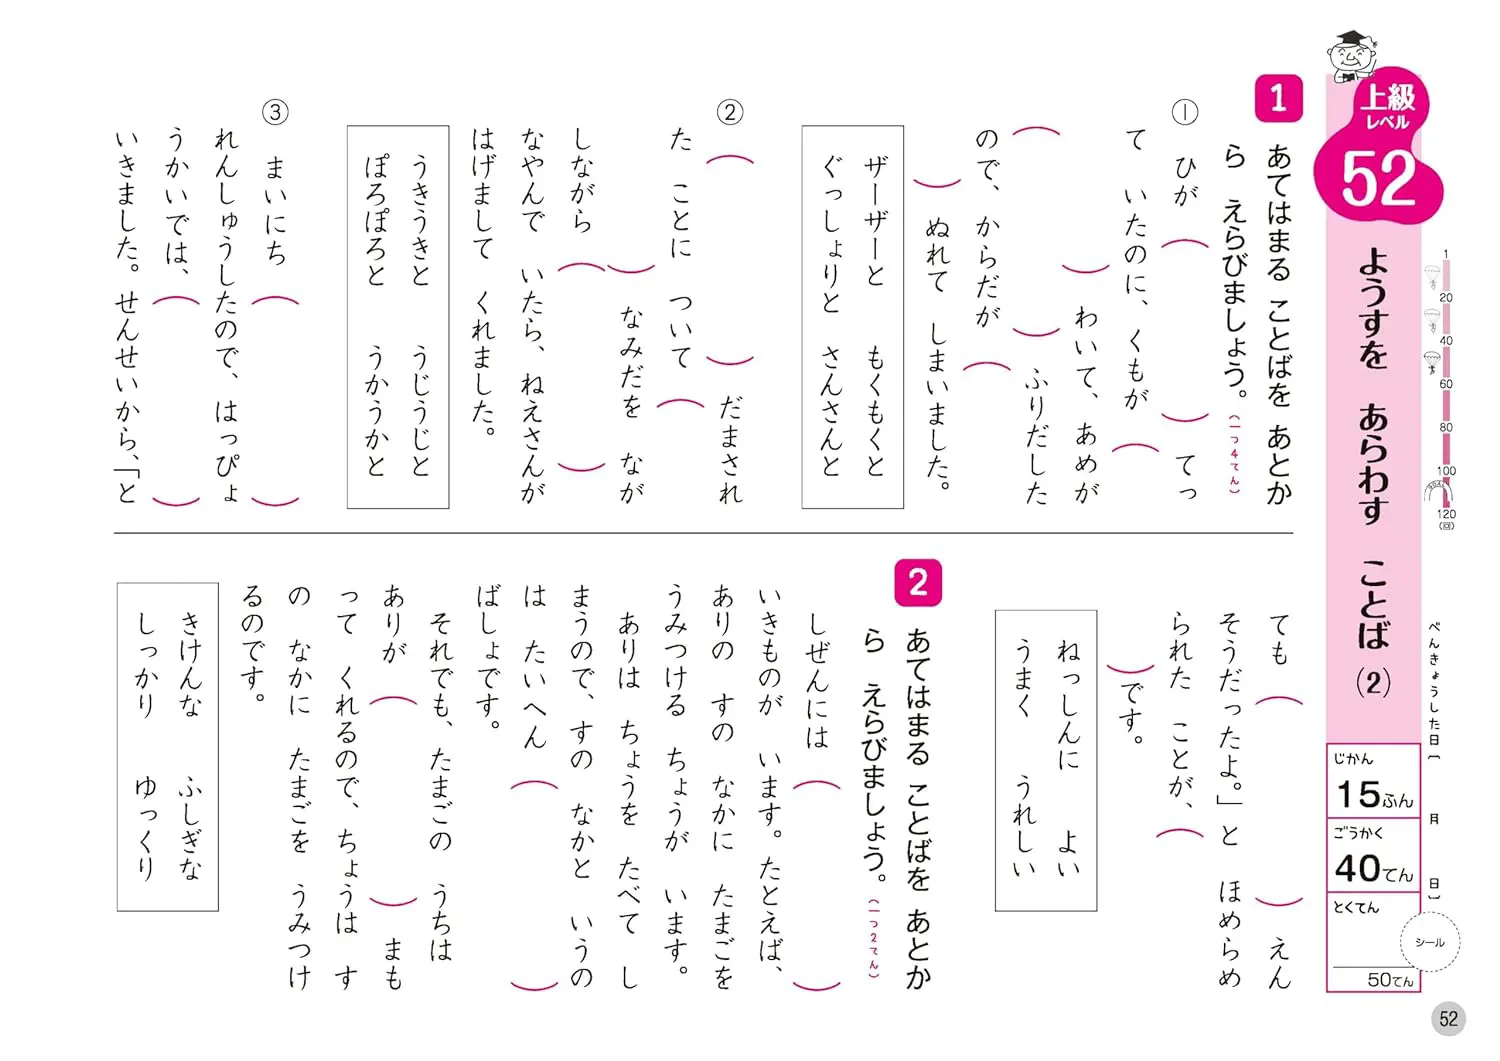 上級
レベル
52
ようすを　あらわす　ことば(2)
1
20
40
60
80
100
120
(回)
べんきょうした日〔　　月　　日〕
じかん
15ふん
ごうかく
40てん
とくてん
50てん
シール
1
あてはまる　ことばを　あとか
ら　えらびましょう。(一つ4てん)
①　ひが（　　　）てっ
て　いたのに、くもが
（　　　）わいて、あめが
（　　　）ふりだした
ので、からだが
（　　　）ぬれて　しまいました。
ザーザーと　もくもくと
ぐっしょりと　さんさんと
②（　　　）だまされ
た　ことに　ついて
（　　　）なみだを　なが
しながら（　　　）
なやんで　いたら、ねえさんが
はげまして　くれました。
うきうきと　うじうじと
ぽろぽろと　うかうかと
③　まいにち（　　　）
れんしゅうしたので、はっぴょ
うかいでは、（　　　）
いきました。せんせいから、「と
ても（　　　）えん
そうだったよ。」と　ほめらめ
られた　ことが、
（　　　）です。
ねっしんに　よい
うまく　うれしい
2
あてはまる　ことばを　あとか
ら　えらびましょう。(一つ2てん)
しぜんには（　　　）
いきものが　います。たとえば、
ありの　すの　なかに　たまごを
うみつける　ちょうが　います。
ありは　ちょうを　たべて　し
まうので、すの　なかと　いうの
は　たいへん（　　　）
ばしょです。
それでも、たまごの　うちは
ありが（　　　）まも
って　くれるので、ちょうは　す
の　なかに　たまごを　うみつけ
るのです。
きけんな　ふしぎな
しっかり　ゆっくり
52